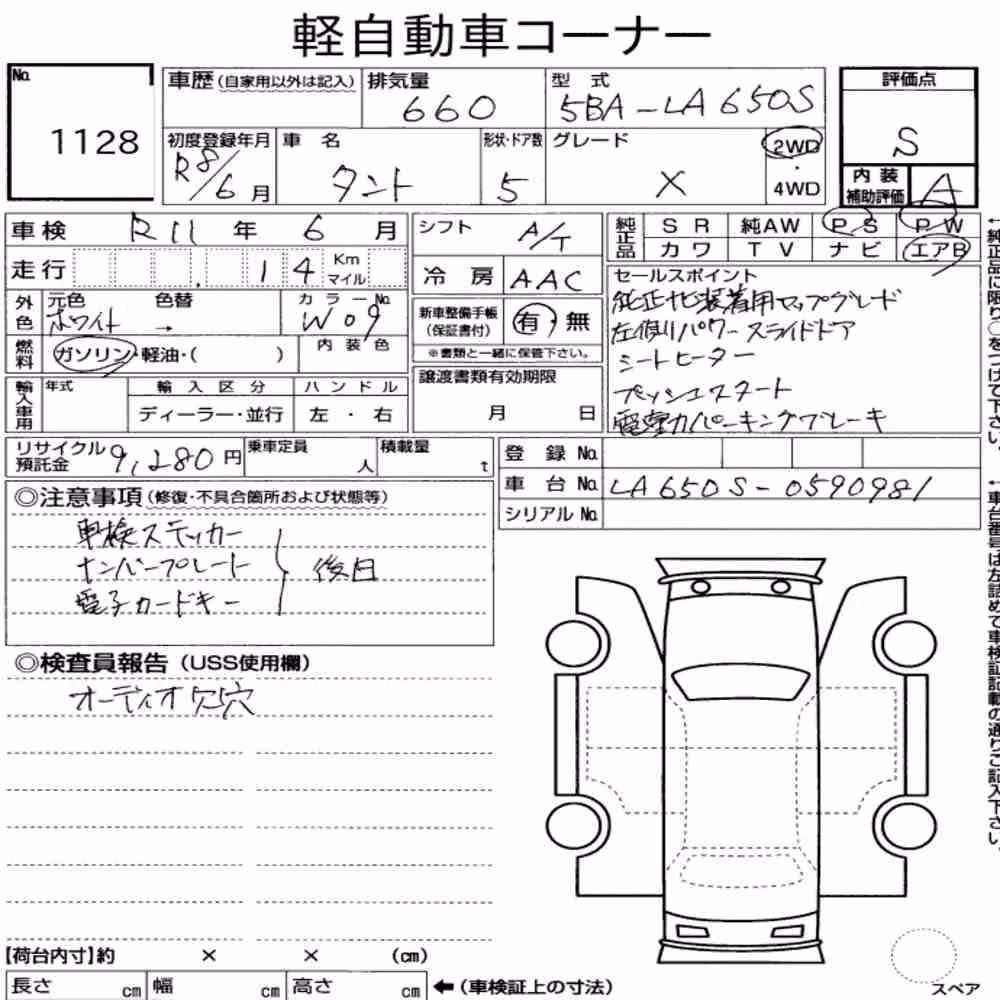 軽自動車コーナー
No. 1128
車歴(自家用以外は記入) 排気量 660 型式 5BA-LA650S 評価点 S
初度登録年月 R8/6月 車名 タント 形状・ドア数 5 グレード X 2WD・4WD 内装補助評価 A
車検 R11年 6月 シフト A/T
走行 14 Km マイル 冷房 AAC
純正品 SR 純AW PS PW
カワ TV ナビ エアB
外色 元色 ホワイト 色替 → カラーNo. W09
新車整備手帳(保証書付) 有・無
※書類と一緒に保管下さい。
燃料 ガソリン・軽油・( ) 内装色
セールスポイント
純正ナビ装着用アップグレード
左側パワースライドドア
シートヒーター
プッシュスタート
電動パーキングブレーキ
輸入車用 年式 輸入区分 ハンドル
ディーラー・並行 左・右
譲渡書類有効期限
月 日
リサイクル預託金 9,280円 乗車定員 人 積載量 t
登録No.
車台No. LA650S-0590981
シリアルNo.
◎注意事項(修復・不具合箇所および状態等)
車検ステッカー
ナンバープレート
電子カードキー
後日
◎検査員報告(USS使用欄)
オーディオ欠穴
【荷台内寸】約 × × (cm)
長さ cm 幅 cm 高さ cm ←(車検証上の寸法)
スペア
←純正品に限り○をつけて下さい。
←車台番号は左詰めで車検証記載の通りご記入下さい。